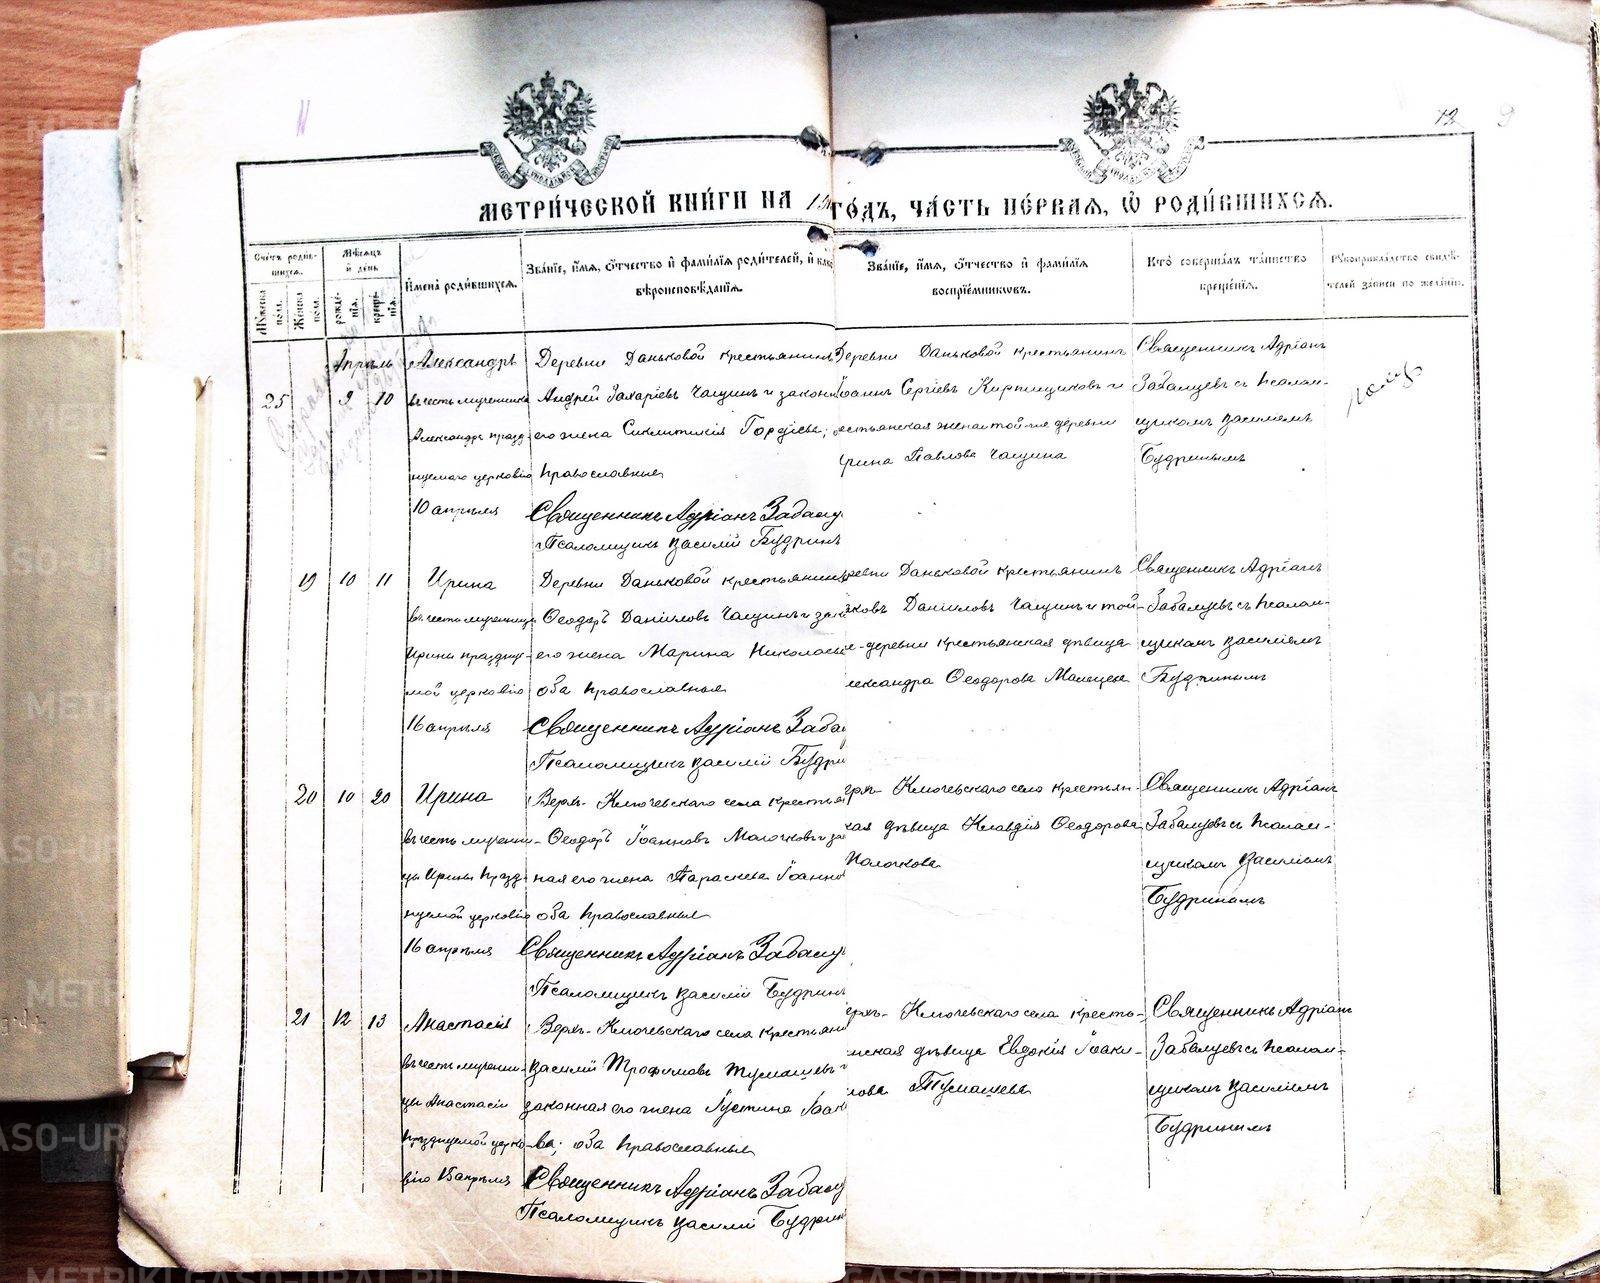 12
МЕТРИ́ЧЕСКОЙ КНИ́ГИ НА 19
ГО́ДЪ, ЧА́СТЬ ПЕ́РВАЯ, Ѡ҆ РОДИ́ВШИХСЯ.
Сче́тъ роди́вшихся.
Му́жеска по́ла.
Же́нска по́ла.
Мѣ́сяцъ и҆ де́нь
рожде́нїя.
креще́нїя.
И҆мена̀ роди́вшихся.
Зва́нїе, и҆́мя, ѻ҆́тчество и҆ фами́лїя роди́телей, и҆ како
вѣроисповѣ́данїя.
Зва́нїе, и҆́мя, ѻ҆́тчество и҆ фами́лїя
воспрїе́мникѡвъ.
Кто̀ соверша́лъ та́инство
креще́нїя.
Рꙋкоприкла́дство свидѣ́телей за́писи по жела́нїю.
25
Апрѣль
9 10
Александръ
въ честь мученика
Александра празд-
нуемаго церковію
10 апрѣля
Деревни Даньковой крестьянинъ
Андрей Захаріевъ Чащинъ и законн
его жена Сиклитикія Гордіева;
православные
Священникъ Адріанъ Забалу
Псаломщикъ Василій Будринъ
Деревни Даньковой крестьянинъ
Іоаннъ Сергіевъ Кирпищиковъ и
рестьянская жена той-же деревни
Ирина Павлова Чащина
Священникъ Адріанъ
Забалуевъ съ псалом-
щикомъ Василіемъ
Будринымъ
19 10 11
Ирина
въ честь мученицы
Ирины праздну-
мой церковію
16 апрѣля
Деревни Даньковой крестьянинъ
Ѳеодоръ Даніиловъ Чащинъ и зако
его жена Марина Николаев
оба православные
Священникъ Адріанъ Заба
Псаломщикъ Василій Будри
ревни Даньковой крестьянинъ
ковъ Данииловъ Чащинъ и той-
е-деревни крестьянская дѣвица
лександра Ѳеодорова
Священникъ Адріанъ
Забалуевъ съ псалом-
щикомъ Василіемъ
Будринымъ
20 10 20
Ирина
въ честь мучени-
цы Ирины празд-
нуемой церковію
16 апрѣля
Верх- Ключевскаго села крестья
Ѳеодоръ Іоанновъ Молочковъ и за
ная его жена Параскева Іоанно
оба православные
Священникъ Адріанъ Забалу
Псаломщикъ Василій Будринъ
ерх- Ключевскаго села крестьян-
кая дѣвица Клавдія Ѳеодорова
Молочкова
Священникъ Адріанъ
Забалуевъ съ псалом-
щикомъ Василіемъ
Будринымъ
21 12 13
Анастасія
въ честь мучени-
цы Анастасіи
празднуемой церко-
вію 15 апрѣля
Верх- Ключевскаго села крестьяни
Василій Трофимовъ Тумашевъ и
законная его жена Іустина Іоак
ва; оба православные
Священникъ Адріанъ Забалу
Псаломщикъ Василій Будрин
ерх- Ключевскаго села кресть-
нская дѣвица Евдокія Іоаки-
мова Тумашева
Священникъ Адріанъ
Забалуевъ съ псалом-
щикомъ Василіемъ
Будринымъ
METRIKI.GASO-URAL.RU